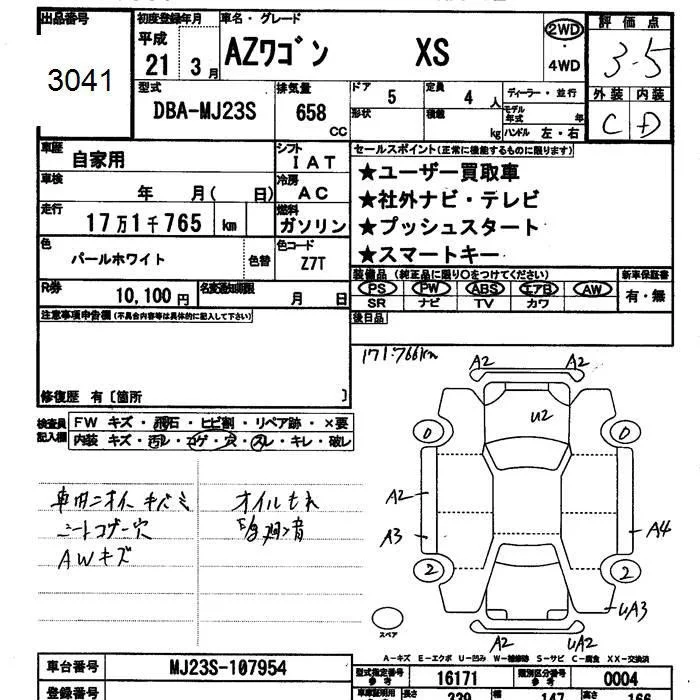 出品番号
3041
初度登録年月
平成
21 3月
車名・グレード
AZワゴン XS
2WD
・
4WD
評価点
3.5
外装 内装
C D
型式
DBA-MJ23S
排気量
658
CC
ドア
5
定員
4人
形状
積載
kg
ディーラー・並行
モデル年式 年
ハンドル 左・右
車歴
自家用
シフト
IAT
車検
年 月( 日)
冷房
AC
走行
17万1千765 km
燃料
ガソリン
色
パールホワイト
色替
色コード
Z7T
R券
10,100円
名変通知期限
月 日
セールスポイント(正常に機能するものに限ります)
★ユーザー買取車
★社外ナビ・テレビ
★プッシュスタート
★スマートキー
装備品 (純正品に限り〇をつけてください)
PS PW ABS エアB AW
SR ナビ TV カワ
新車保証書
有・無
後日品
注意事項申告欄(不具合内容等は具体的に記入して下さい)
修復歴 有〔箇所 〕
検査員記入欄
FW キズ・飛石・ヒビ割・リペア跡・×要
内装 キズ・汚レ・コゲ・穴・スレ・キレ・破レ
車内ニオイ キバミ
シートコゲ穴
AWキズ
オイルもれ
171.766km
A2 A2
U2
0 0
A2
A3
A4
2 2
UA3
A2 UA2
スペア
A-キズ E-エクボ U-凹み W-補修跡 S-サビ C-腐食 XX-交換済
車台番号
MJ23S-107954
型式指定番号
参考
16171
類別区分番号
参考
0004
登録番号
車車証明用
長さ
339
幅
147
高さ
166